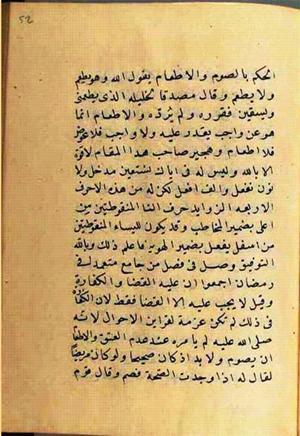 ٥٢
الحكم بالصوم والاطعام يقول الله وهو يطعم
ولا يطعم وقال مصدقا لخليله الذى يطعمنى
ويسقين فقرره ولم يردّه والاطعام انما
هو عن واجب يقدر عليه ولا واجب فلا عوض
فلا اطعام وهجير صاحب هذا المقام لا قوة
الا بالله وليس له فى اياك نستعين مدخل ولا
نون نفعل والف افعل لكن له من هذه الاحرف
الاربعة الزوايد حرف التا المنقوطة من
اعلى بضمير المخاطب وقد يكون للياء المنقوطتين
من اسفل يفعل بضمير الهو فاعلم ذلك وبالله
التوفيق وصل فى فصل من جامع متعمدا فى
رمضان اجمعوا ان عليه القضا والكفارة
وقيل لا يجب عليه الا القضا فقط لان الكفارة
فى ذلك لم تكن عزمة لقراين الاحوال لانه
صلى الله عليه لم يامره عند عدم العتق والاطعام
ان يصوم ولا بد اذ كان صحيحا ولو كان مريضا
لقال له اذا وجدت الصحة فصم وقال قوم